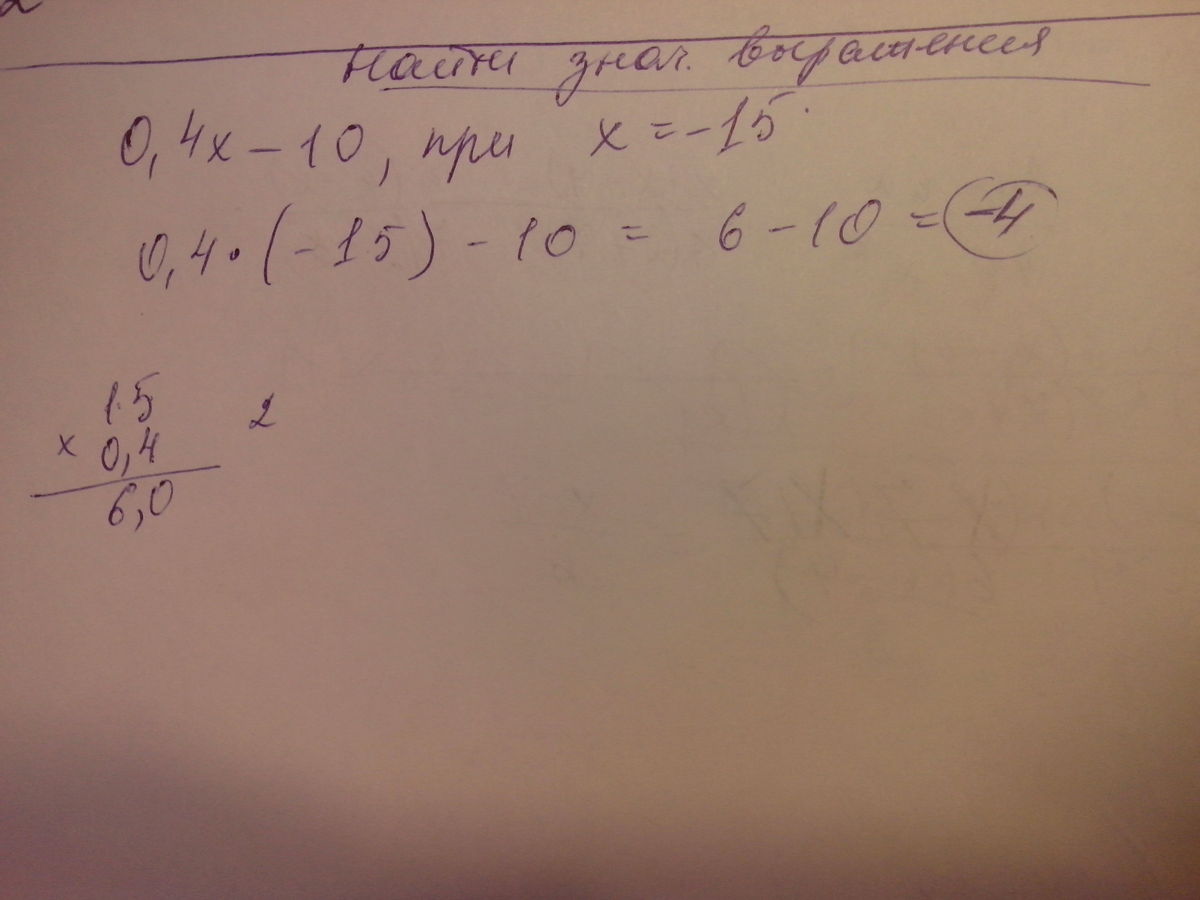 Найти знач. выражения
0,4x - 10, при x = -15
0,4 · (-15) - 10 = 6 - 10 = -4
15 2
x 0,4
6,0